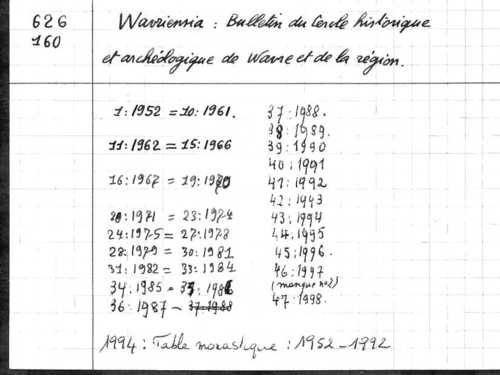 626
160
Wavriensia : Bulletin du Cercle historique
et archéologique de Wavre et de la région.
1 : 1952 = 10 : 1961.
11 : 1962 = 15 : 1966
16 : 1967 = 19 : 1970
20 : 1971 = 23 : 1974
24 : 1975 = 27 : 1978
28 : 1979 = 30 : 1981
31 : 1982 = 33 : 1984
34 : 1985 = 35 : 1986
36 : 1987 - 37 : 1988
37 : 1988.
38 : 1989.
39 : 1990
40 : 1991
41 : 1992
42 : 1943
43 : 1994
44 : 1995
45 : 1996.
46 : 1997
(manque n°2)
47 : 1998.
1994 : Table monastique : 1952 - 1992